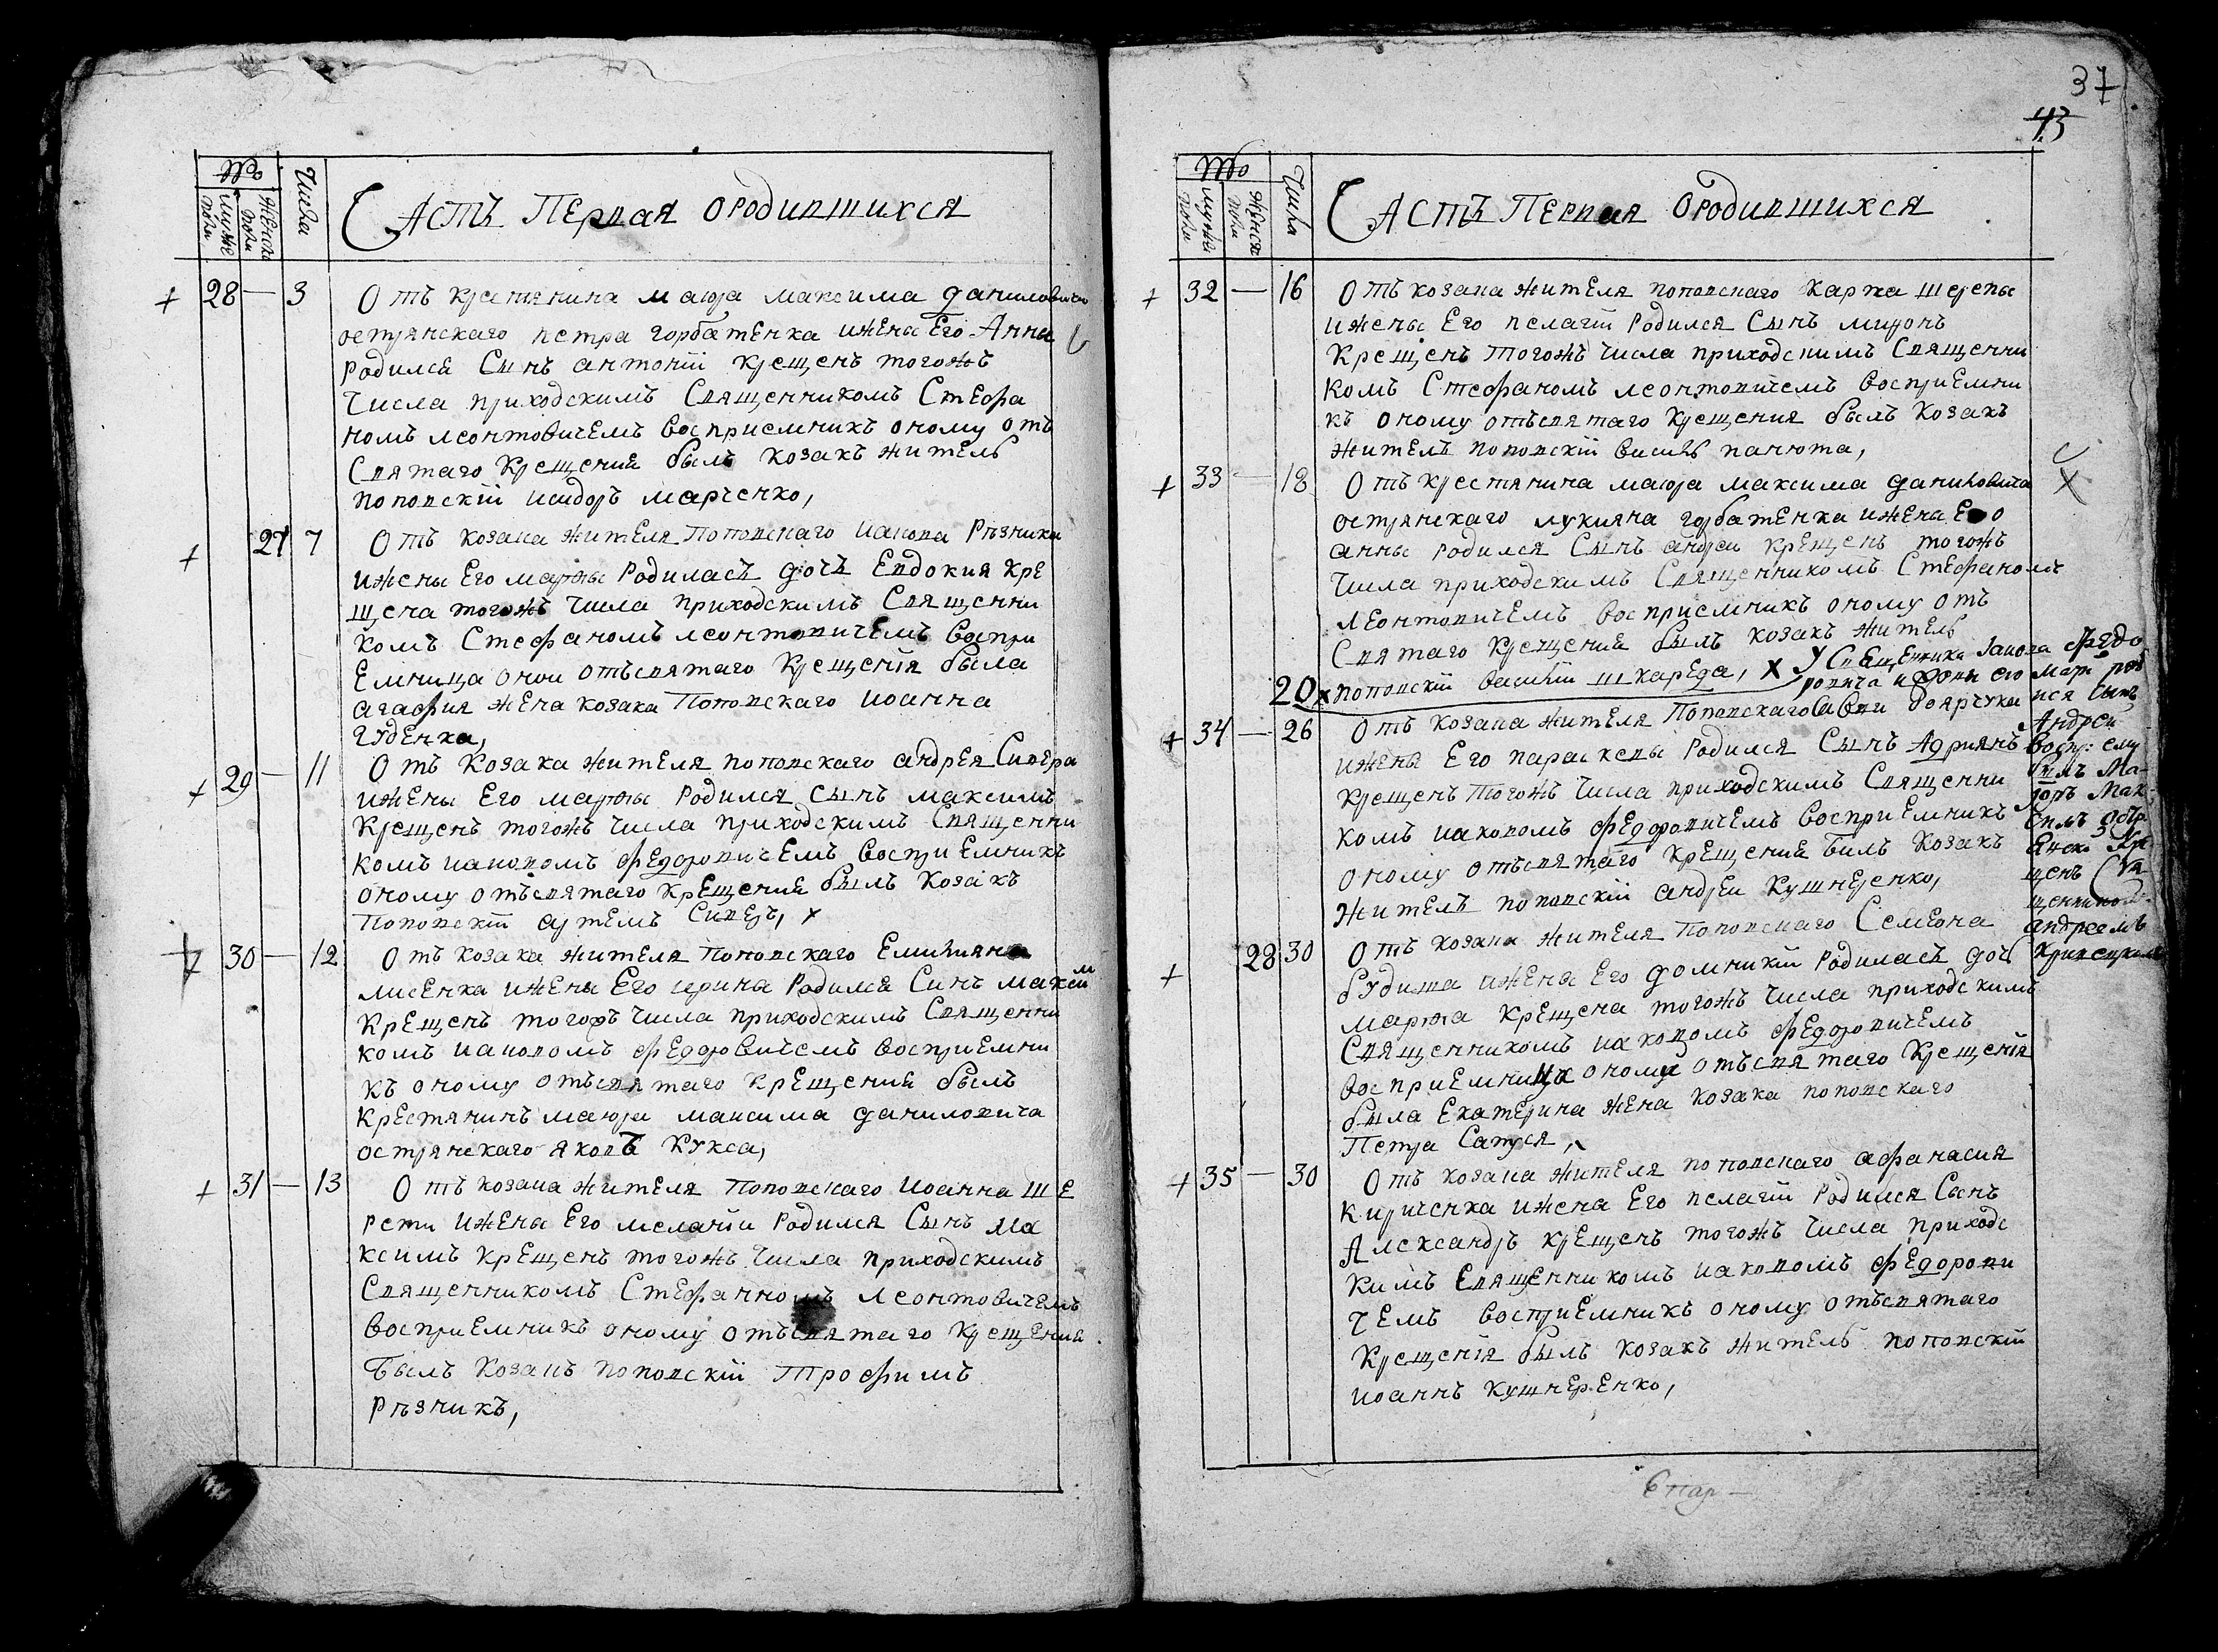 №
Муже полъ
Женска полъ
Числа
Часть Первая о родившихся
28 — 3 Отъ крестянина маіора максима даниловича
острянскаго петра горбатенка ижены Его Анны
родился Сынъ антоній крещенъ тогожъ
Числа приходскимъ Священникомъ Стефа
номъ леонтовичемъ восприемникъ оному отъ
Святаго крещения былъ козакъ житель
поповскій исидоръ марченко,
27 7 Отъ козака жителя Поповскаго иакова Рѣзника
ижены Его марѳы Родиласъ дочъ Евдокия кре
щена тогожъ числа приходскимъ Священни
комъ Стефаномъ леонтовичемъ воспри
Емница оной отъсвятаго крещенія была
агафия жена козака Поповскаго иоанна
гуденка,
29 — 11 Отъ Козака жителя поповскаго андрея Сивера
ижены Его марѳы Родился сынъ максимъ
крещенъ тогожъ числа приходскимъ Священни
комъ иаковомъ федоровичемъ восприемникъ
оному отъсвятаго крещения былъ козакъ
Поповскій артемъ Сиверъ,
30 — 12 Отъ козака жителя Поповскаго Емилиана
лисенка ижены Его ирина Родился Синъ максим
крещенъ тогожъ числа приходскимъ Священни
комъ иаковомъ федоровичемъ восприемни
къ оному отъсвятаго крещения былъ
крестянинъ маіора максима даниловича
острянскаго яковъ кукса,
31 — 13 Отъ козака жителя Поповскаго иоанна ше
рети ижены Его меланіи Родился Сынъ ма
ксимъ крещенъ тогожъ числа приходскимъ
Священникомъ Стефанномъ леонтовичемъ
восприемникъ оному отъсвятаго крещения
былъ козакъ поповскій трофимъ
рѣзникъ,
37
43
№
Мужеска полъ
Женска полъ
Числа
Часть Первая о родившихся
32 — 16 Отъ козака жителя поповскаго карпа шерепы
ижены Его пелагіи Родился Сынъ миронъ
крещенъ тогожъ числа приходскимъ Священни
комъ Стефаномъ леонтовичемъ восприемни
къ оному отъсвятаго крещения былъ козакъ
житель поповскій василь панюта,
33 — 18 Отъ крестянина маіора максима даниловича
острянскаго лукияна горбатенка ижена Его
анны родился Сынъ андреи крещенъ тогожъ
числа приходскимъ Священникомъ Стефаномъ
леонтовичемъ восприемникъ оному отъ
Святаго крещения былъ козакъ житель
поповскій василій шкареда,
20 У Священника Іакова Федо
ровича и жони его Маріи родил
ися сынъ
Андреи
воспр: ему
былъ Ма-
іоръ Мак-
симъ Остр
янски Кре
щенъ Свя
щенником
андреемъ
34 — 26 Отъ козака жителя Поповскаго Савви боярчука
ижены Его параскевы Родился Сынъ Адриянъ
крещенъ тогожъ числа приходскимъ Священни
комъ иаковомъ федоровичемъ восприемникъ
оному отъсвятаго крещения билъ козакъ
житель поповскій андреи кушнеренко,
28 30 Отъ козака жителя Поповскаго Семеона
ижена Его домникіи Родиласъ дочъ
марѳа крещена тогожъ числа приходскимъ
Священникомъ иаковомъ федоровичемъ
восприемница оному отъсвятаго крещенія
была екатерина жена козака поповскаго
Петра
35 — 30 Отъ козака жителя поповскаго афанасия
кириченка ижена Его пелагіи Родился Сынъ
Александръ крещенъ тогожъ числа приходс
кимъ священникомъ иаковомъ федорови
чемъ восприемникъ оному отъсвятаго
крещенія былъ козакъ житель поповскій
иоаннъ кушнеренко,
6 пар —